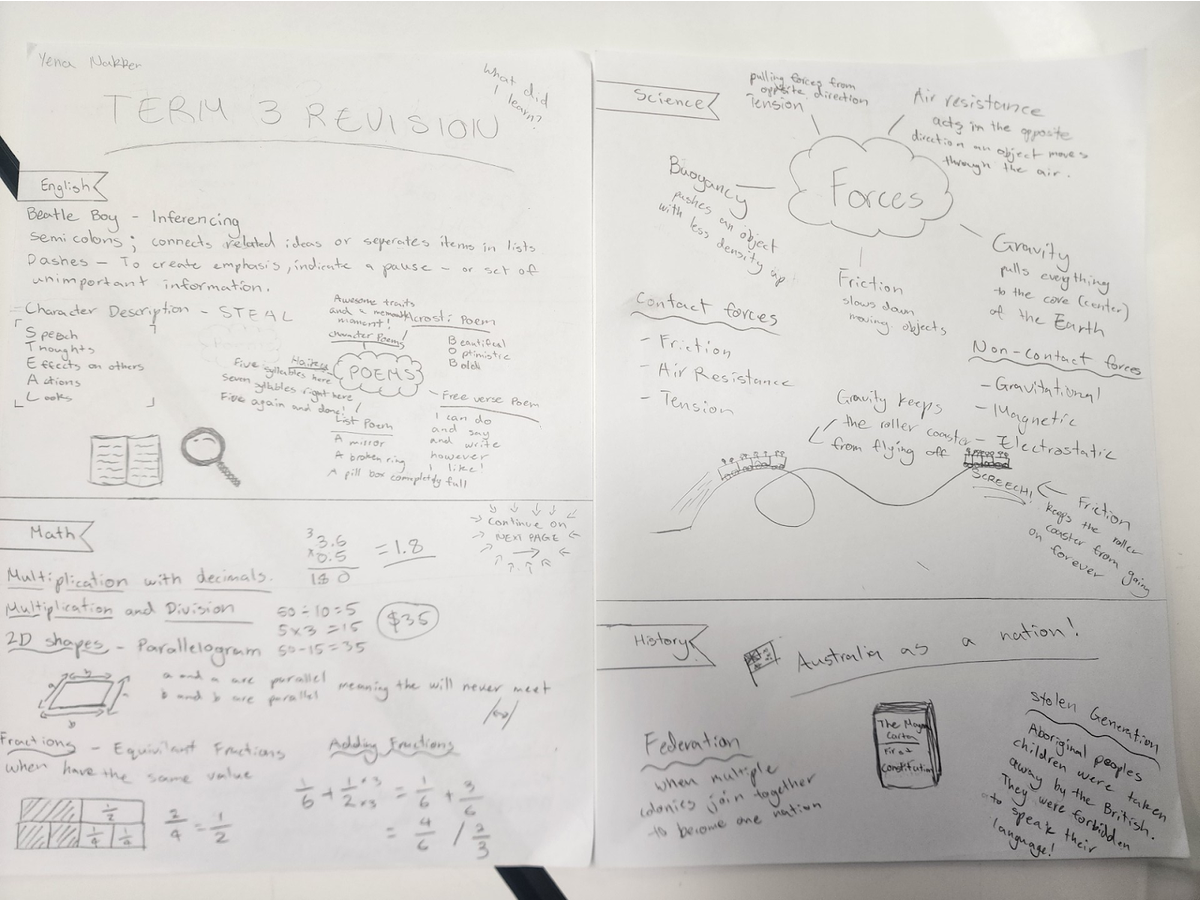 Yena Nakker
What did
I learn?
TERM 3 REVISION
English
Beatle Boy - Inferencing
Semi colons ; connects related ideas or seperates items in lists
Dashes - To create emphasis, indicate a pause - or set of
unimportant information.
Character Description - STEAL
Speech
Thoughts
Effects on others
Actions
Looks
Awesome traits
and a
moment!
character Poems
Acrosti Poem
Beautiful
Optimistic
Bold
POEMS
Haikers
Five syllables here
Seven syllables right here
Five again and done!
List Poem
A mirror
A broken ring
A pill box completly full
Free verse Poem
I can do
and say
and write
however
I like!
Math
Continue on
NEXT PAGE
Multiplication with decimals.
3
3.6
x0.5
180
=1.8
Multiplication and Division
50÷10=5
5x3=15
50-15=35
$35
2D shapes - Parallelogram
a
b
a
b
a and a are parallel
b and b are parallel
meaning the will never meet
Fractions - Equivilant Fractions
when have the same value
1/2
1/4 1/4
2/4 = 1/2
Adding Fractions
1/6 + 1/2 x3 x3 = 1/6 + 3/6
= 4/6 / 2/3
Science
pulling forces from
opposite direction
Tension
Air resistance
acts in the opposite
direction an object moves
through the air.
Forces
Buoyancy
pushes an object
with less density up.
Friction
slows down
moving objects
Gravity
pulls everything
to the core (center)
of the Earth
Contact forces
- Friction
- Air Resistance
- Tension
Non-Contact forces
- Gravitational
- Magnetic
- Electrostatic
Gravity keeps
the roller coaster
from flying off
SCREECH!
Friction
keeps the roller
coaster from going
on forever
History
Australia as a nation!
Federation
when multiple
colonies join together
to become one nation
The Magna
Carta
First
Constitution
Stolen Generation
Aboriginal peoples
children were taken
away by the British.
They were forbidden
to speak their
language!